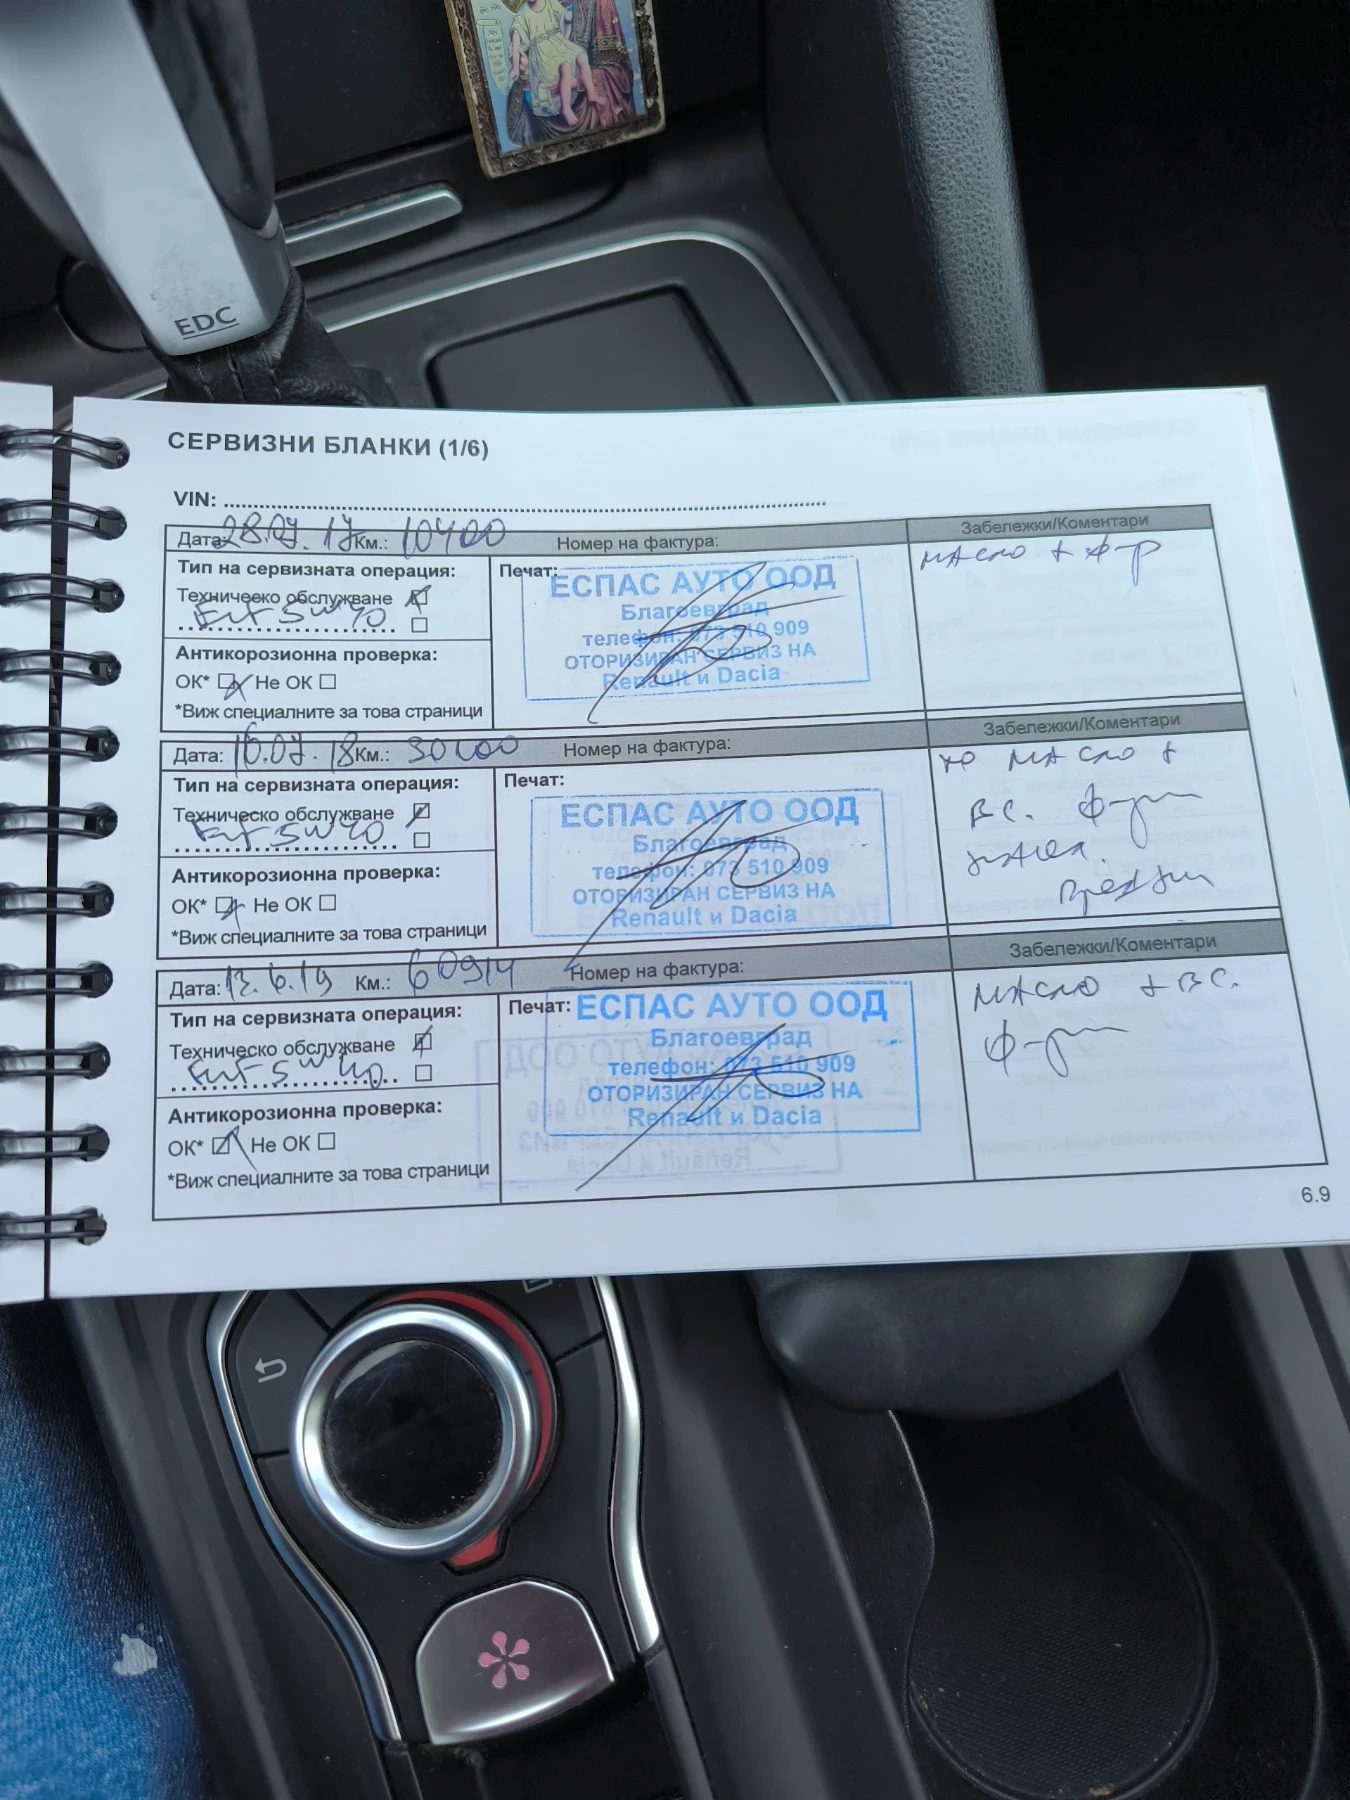 EDC
СЕРВИЗНИ БЛАНКИ (1/6)
VIN:
Дата: 28.07.17 Км.: 10400 Номер на фактура: Забележки/Коментари
Тип на сервизната операция: Печат: масло + ф-р
Техническо обслужване
Elf 5W40
Антикорозионна проверка:
ОК* Не ОК
*Виж специалните за това страници
ЕСПАС АУТО ООД
Благоевград
телефон: 073 510 909
ОТОРИЗИРАН СЕРВИЗ НА
Renault и Dacia
Дата: 16.07.18 Км.: 30400 Номер на фактура: Забележки/Коментари
Тип на сервизната операция: Печат: масло +
Техническо обслужване вс. ф-ри
Elf 5W40
Антикорозионна проверка:
ОК* Не ОК
*Виж специалните за това страници
ЕСПАС АУТО ООД
Благоевград
телефон: 073 510 909
ОТОРИЗИРАН СЕРВИЗ НА
Renault и Dacia
Дата: 12.6.19 Км.: 60914 Номер на фактура: Забележки/Коментари
Тип на сервизната операция: Печат: масло + вс.
Техническо обслужване ф-ри
Elf 5W40
Антикорозионна проверка:
ОК* Не ОК
*Виж специалните за това страници
ЕСПАС АУТО ООД
Благоевград
телефон: 073 510 909
ОТОРИЗИРАН СЕРВИЗ НА
Renault и Dacia
6.9